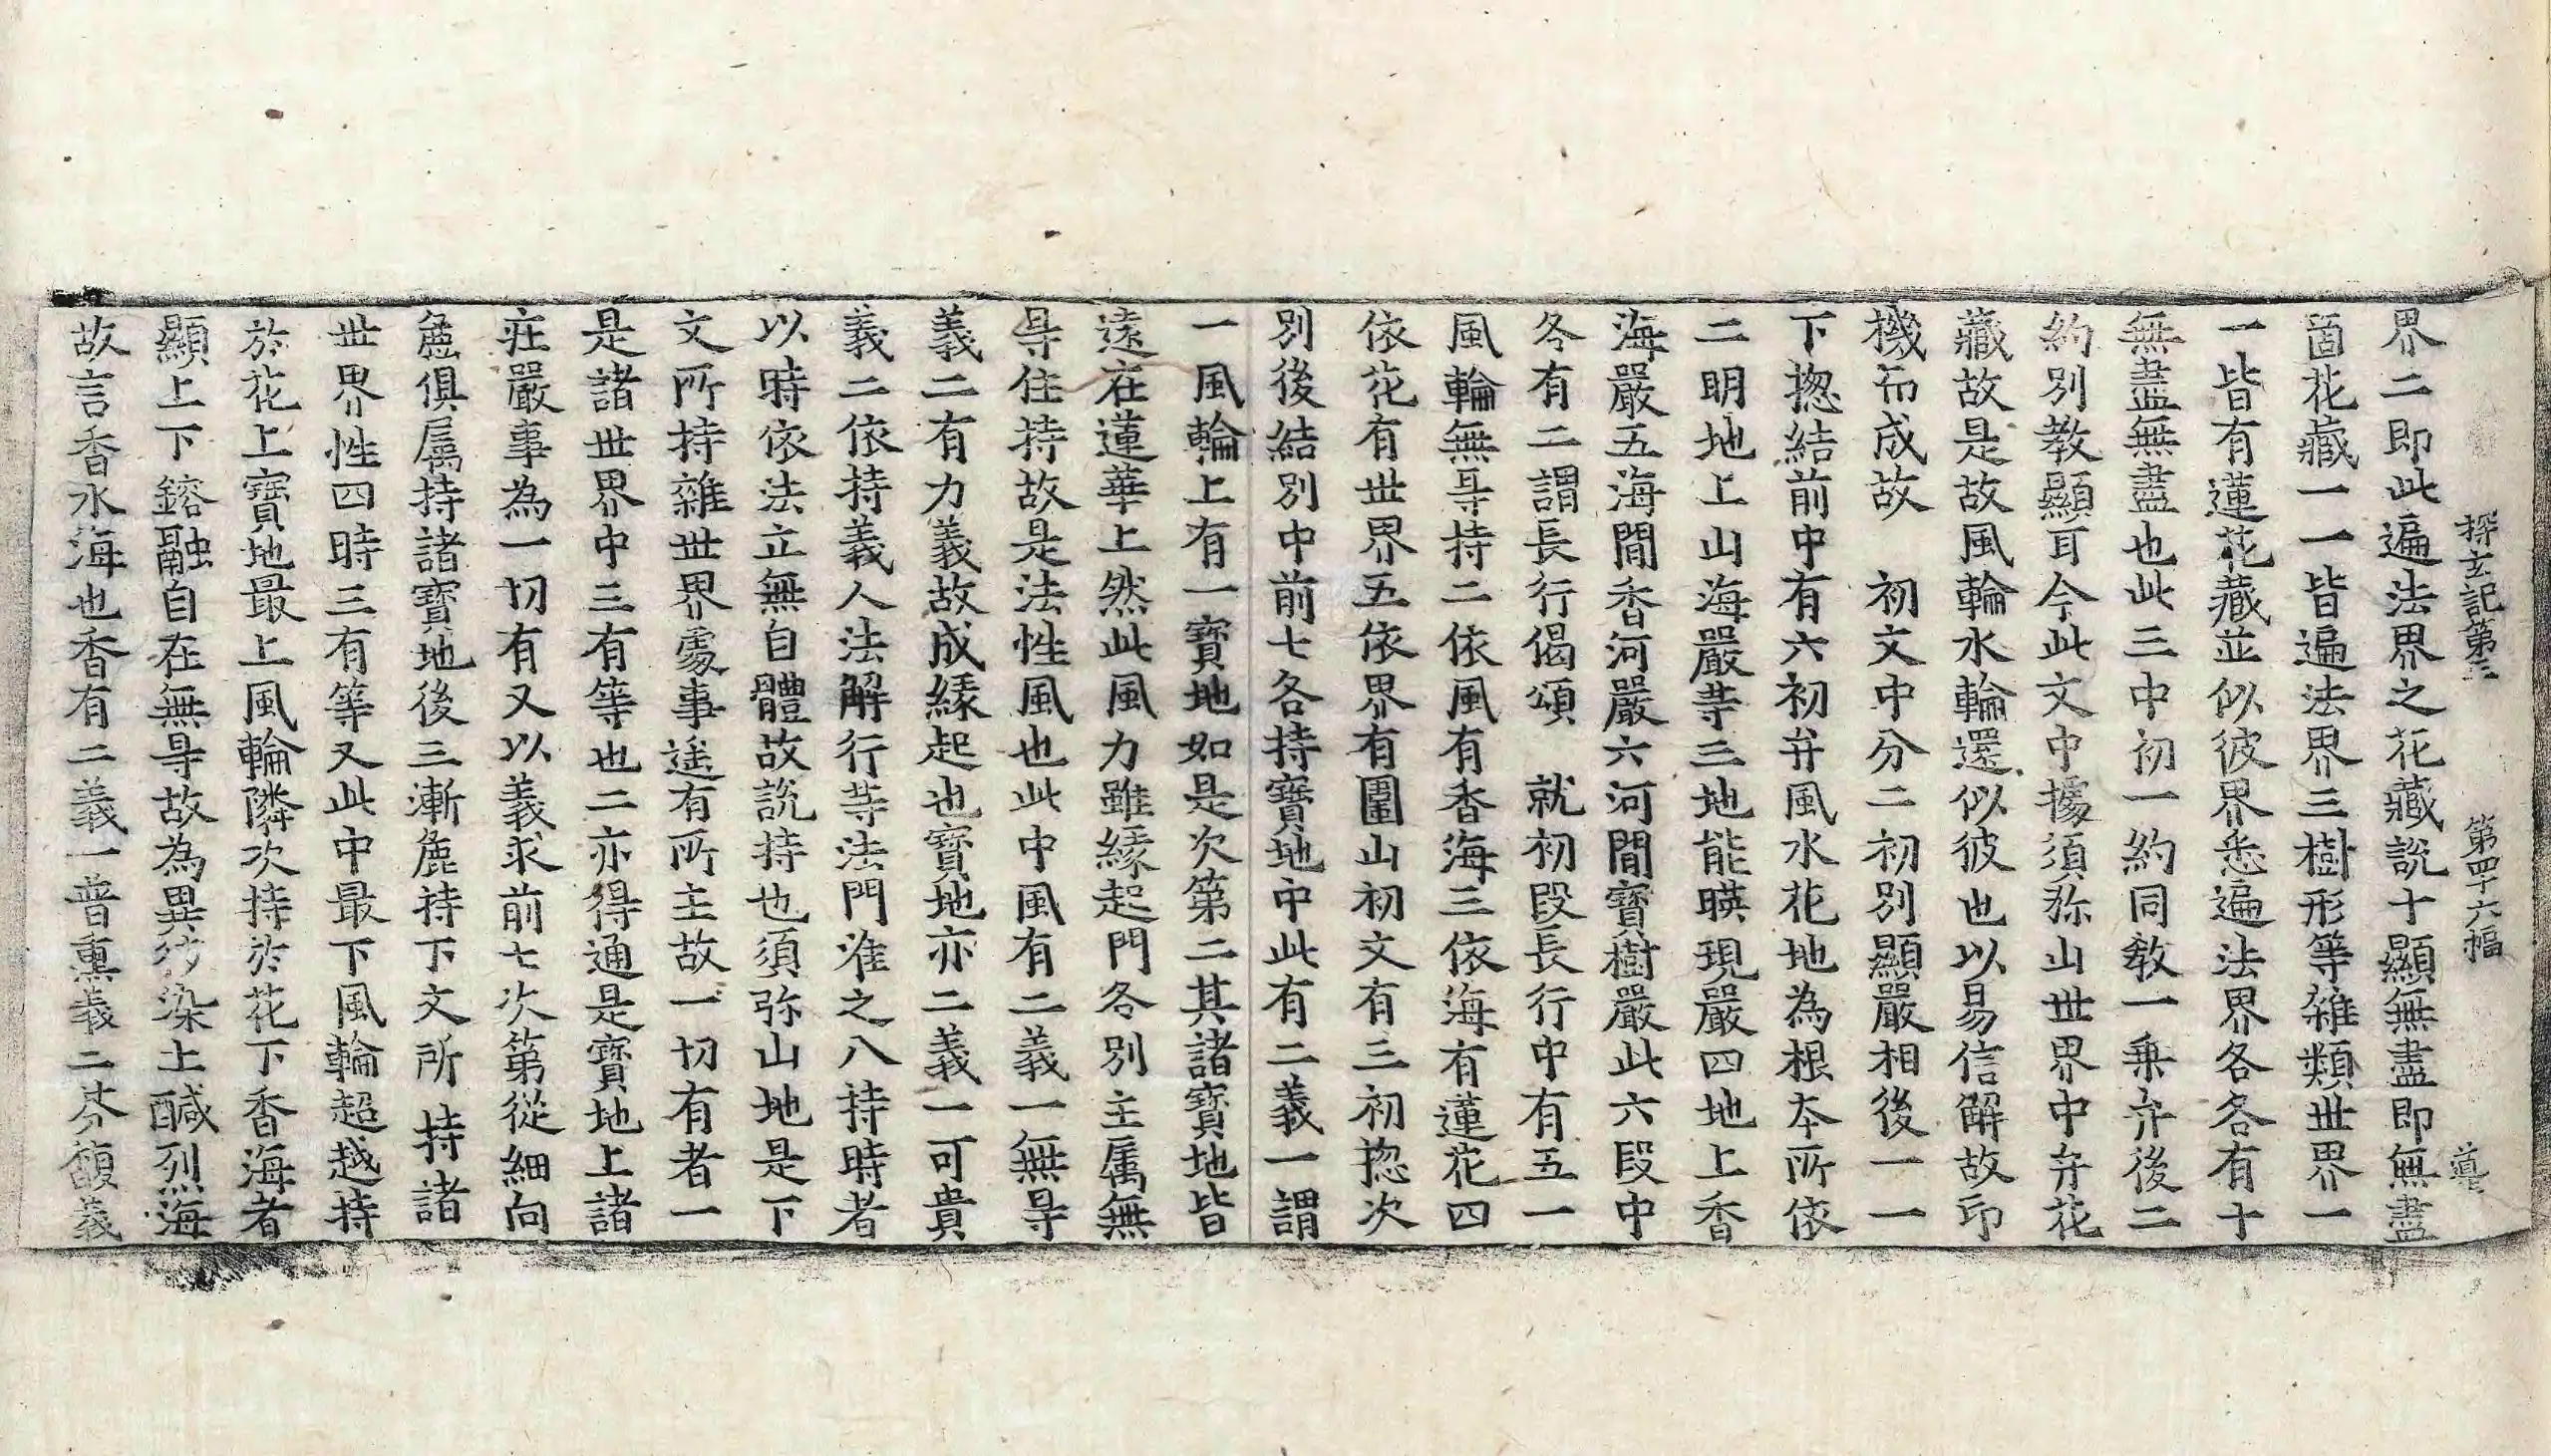 探玄記第三 第四十六幅 導
界二即此遍法界之花藏說十顯無盡即無盡
箇花藏一一皆遍法界三樹形等雜類世界一
一皆有蓮花藏並似彼界悉遍法界各各有十
無盡無盡也此三中初一約同教一乗弁後二
約別教顯耳今此文中據須弥山世界中弁花
藏故是故風輪水輪還似彼也以易信解故印
機而成故　初文中分二初別顯嚴相後一一
下揔結前中有六初弁風水花地為根本所依
二明地上山海嚴等三地能暎現嚴四地上香
海嚴五海間香河嚴六河間寶樹嚴此六段中
各有二謂長行偈頌　就初段長行中有五一
風輪無㝵持二依風有香海三依海有蓮花四
依花有世界五依界有圍山初文有三初揔次
別後結別中前七各持寶地中此有二義一謂
一風輪上有一寶地如是次第二其諸寶地皆
遠在蓮華上然此風力雖緣起門各別主属無
㝵住持故是法性風也此中風有二義一無㝵
義二有力義故成緣起也寶地亦二義一可貴
義二依持義人法解行等法門准之八持時者
以時依法立無自體故説持也須弥山地是下
文所持雜世界處事遥有所主故一切有者一
是諸世界中三有等也二亦得通是寶地上諸
莊嚴事為一切有又以義求前七次第從細向
麁俱属持諸寶地後三漸麁持下文所持諸
世界性四時三有等又此中最下風輪超越持
於花上寶地最上風輪隣次持於花下香海者
顯上下鎔融自在無㝵故為異染上鹹烈海
故言香水海也香有二義一普熏義二芬馥義